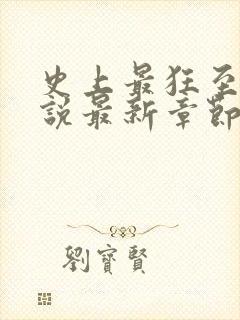 史上最狂至
說最新章節
劉寶賢